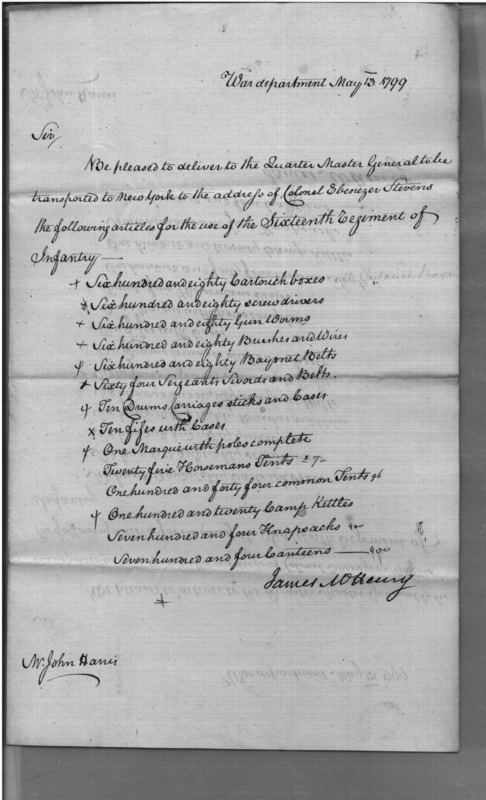 War department May 13 1799
Sir,
Be pleased to deliver to the Quarter Master General to be
transported to New York to the address of Colonel Ebenezer Stevens
the following articles for the use of the Sixteenth Regiment of
Infantry —
+ Six hundred and eighty Cartouch boxes
+ Six hundred and eighty screw drivers
+ Six hundred and eighty Gun Worms
+ Six hundred and eighty Brushes and Wires
Six hundred and eighty Bayonet Belts
+ Sixty four Sergeants Swords and Belts.
Ten Drums, Carriages sticks and Cases
x Ten fifes with Cases
One Marque with poles complete
Twenty five Horsemans Tents
One hundred and forty four common Tents 96
One hundred and twenty Camp Kettles
Seven hundred and four Knapsacks
Seven hundred and four Canteens — 400
James McHenry
+
Mr. John Harris